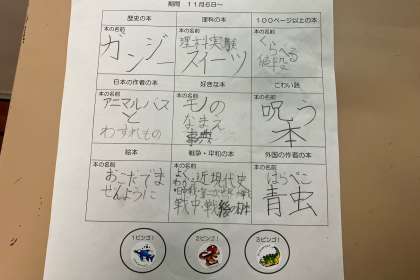 期間 11月6日〜
歴史の本
理科の本
100ページ以上の本
本の名前
本の名前
本の名前
ガンジー
理科実験
スイーツ
くらべる
値段
日本の作者の本
好きな本
こわい話
本の名前
本の名前
本の名前
アニマルバス
と
わすれもの
モノの
なまえ
事典
呪う
本
絵本
戦争・平和の本
外国の作者の本
本の名前
本の名前
本の名前
おこだでま
せんように
よくわかる近現代史
戦中・戦後の日本
はらぺこ
青虫
1ビンゴ!
2ビンゴ!
3ビンゴ!